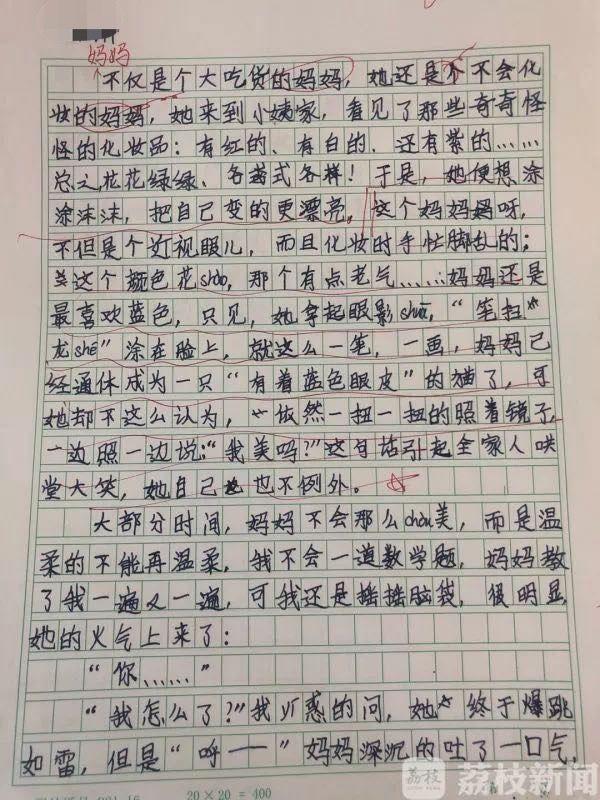 妈妈
不仅是个大吃货的妈妈，她还是个不会化
妆的妈妈，她来到小姨家，看见了那些奇奇怪
怪的化妆品：有红的、有白的、还有紫的……
总之花花绿绿、各式各样！于是，她便想涂
涂沫沫，把自己变的更漂亮。这个妈妈呀，
不但是个近视眼儿，而且化妆时手忙脚乱的；
这个颜色花shào，那个有点老气……妈妈还是
最喜欢蓝色，只见，她拿起眼影shuā，“笔扫
龙shé”涂在脸上，就这么一笔，一画，妈妈已
经通体成为一只“有着蓝色眼皮”的猫了，可
她却不这么认为，依然一扭一扭的照着镜子，
一边照一边说：“我美吗？”这句话引起全家人哄
堂大笑，她自己也不例外。
大部分时间，妈妈不会那么chòu美，而是温
柔的不能再温柔，我不会一道数学题，妈妈教
了我一遍又一遍，可我还是摇摇脑袋，很明显，
她的火气上来了：
“你……”
“我怎么了？”我疑惑的问，她终于爆跳
如雷，但是“呼——”妈妈深沉的吐了一口气，
20×20=400
荔枝新闻